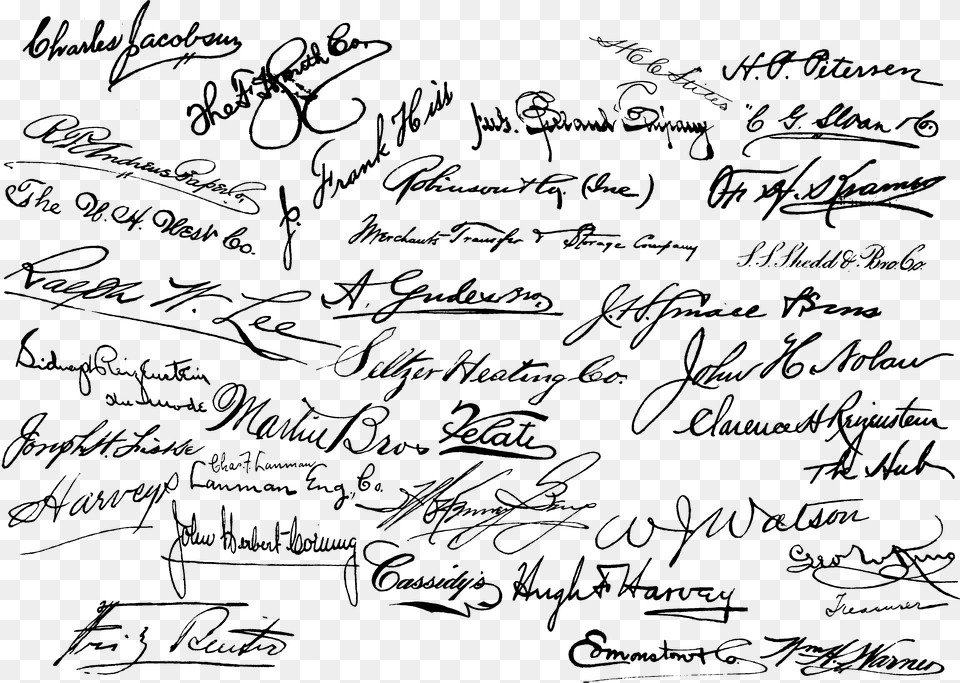 Charles Jacobsen
The F. H. Smith Co.
H C C Stites
H. P. Petersen
Frank Hiss
Jul's. Company
"C. G. Sloan & Co.
R. P. Andrews Paper Co.
Robinson & Co. (Inc.)
H. S. Kramer
The W. H. West Co.
J.
Merchants Transfer & Storage Company
S. S. Shedd & Bro. Co.
Ralph W. Lee
A. Gude
J. H. Grace
Sidney Reizenstein
Seltzer Heating Co.
John H Nolan
a la mode
Martin Bros
Velati
Clarence H Reizenstein
Joseph H.
The Hub
Chas. F. Lanman
Harveys
Lanman Eng. Co.
W J Watson
John Herbert Corning
Geo W King
Treasurer
Cassidy's
Hugh F Harvey
Fritz Reuter
Edmonston & Co.
Wm. H. Warner